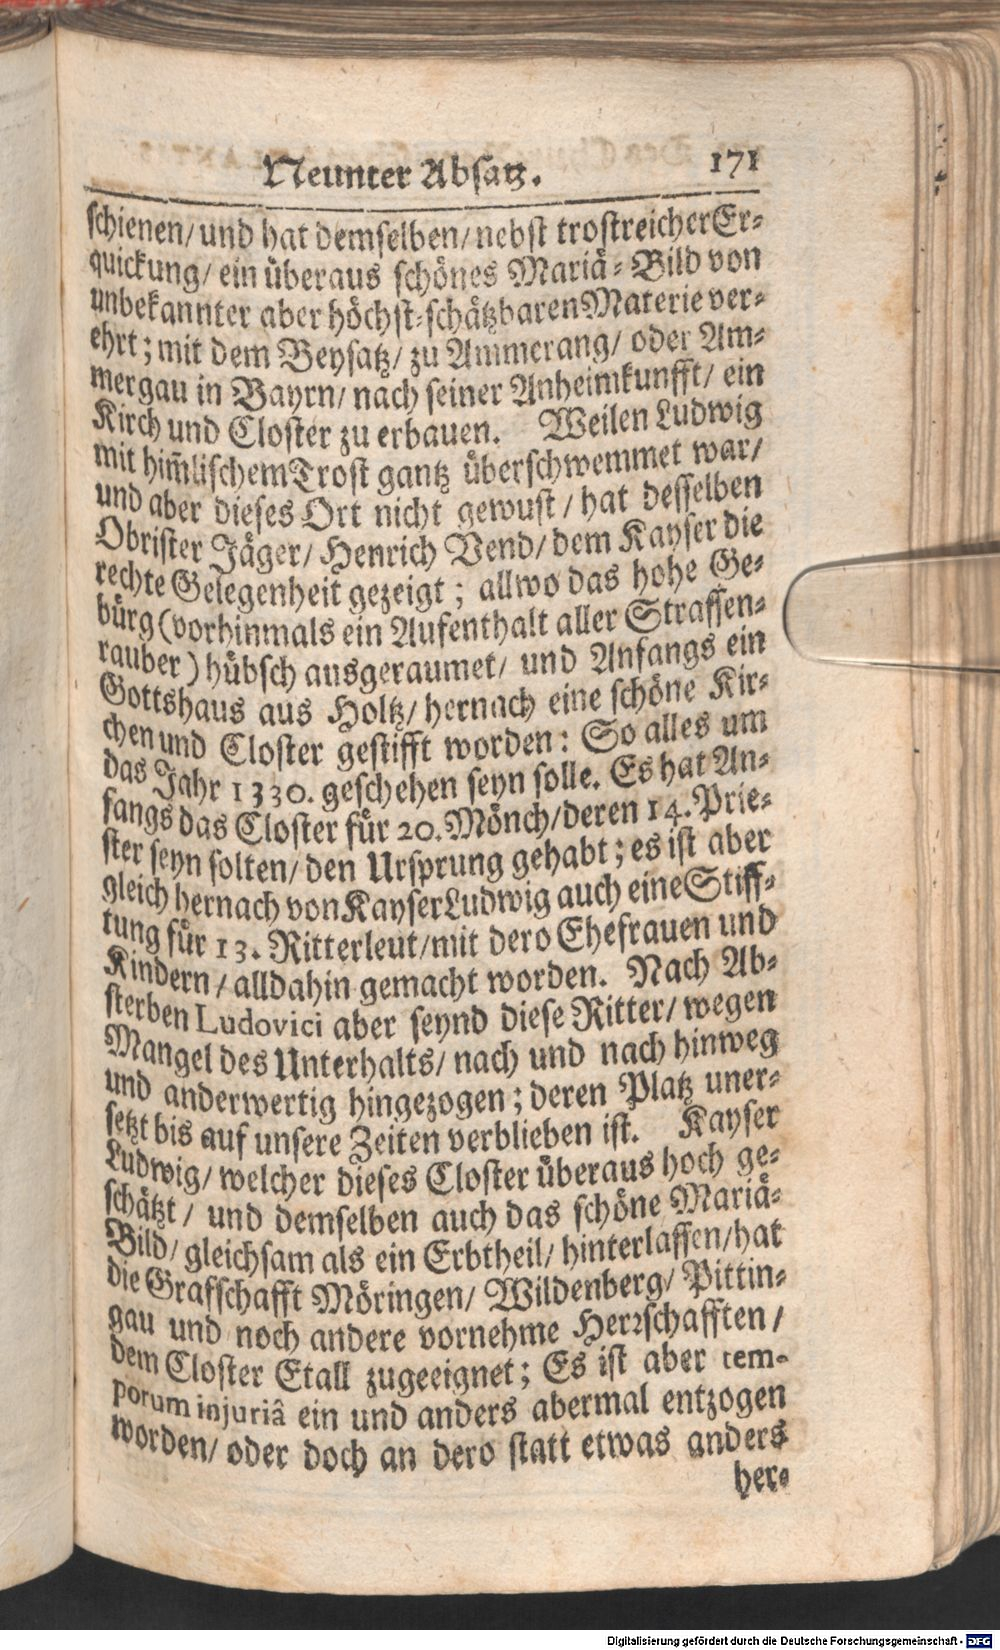 Neunter Absatz. 171
schienen/ und hat demselben/ nebst trostreicher Er-
quickung/ ein überaus schönes Mariä-Bild von
unbekannter aber höchst-schätzbaren Materie ver-
ehrt; mit dem Beysatz/ zu Ammerang/ oder Am-
mergau in Bayrn/ nach seiner Anheimkunfft/ ein
Kirch und Closter zu erbauen. Weilen Ludwig
mit him̃lischem Trost gantz überschwemmet war/
und aber dieses Ort nicht gewust/ hat desselben
Obrister Jäger/ Henrich Vend/ dem Kayser die
rechte Gelegenheit gezeigt; allwo das hohe Ge-
bürg (vorhinmals ein Aufenthalt aller Strassen-
rauber) hübsch ausgeraumet/ und Anfangs ein
Gottshaus aus Holtz/ hernach eine schöne Kir-
chen und Closter gestifft worden: So alles um
das Jahr 1330. geschehen seyn solle. Es hat An-
fangs das Closter für 20. Mönch/ deren 14. Prie-
ster seyn solten/ den Ursprung gehabt; es ist aber
gleich hernach von Kayser Ludwig auch eine Stiff-
tung für 13. Ritterleut/ mit dero Ehefrauen und
Kindern/ alldahin gemacht worden. Nach Ab-
sterben Ludovici aber seynd diese Ritter/ wegen
Mangel des Unterhalts/ nach und nach hinweg
und anderwertig hingezogen; deren Platz uner-
setzt bis auf unsere Zeiten verblieben ist. Kayser
Ludwig/ welcher dieses Closter überaus hoch ge-
schätzt/ und demselben auch das schöne Mariä-
Bild/ gleichsam als ein Erbtheil/ hinterlassen/ hat
die Grafschafft Möringen/ Wildenberg/ Pittin-
gau und noch andere vornehme Herꝛschafften/
dem Closter Etall zugeeignet; Es ist aber tem-
porum injuriâ ein und anders abermal entzogen
worden/ oder doch an dero statt etwas anders
her-
Digitalisierung gefördert durch die Deutsche Forschungsgemeinschaft - DFG